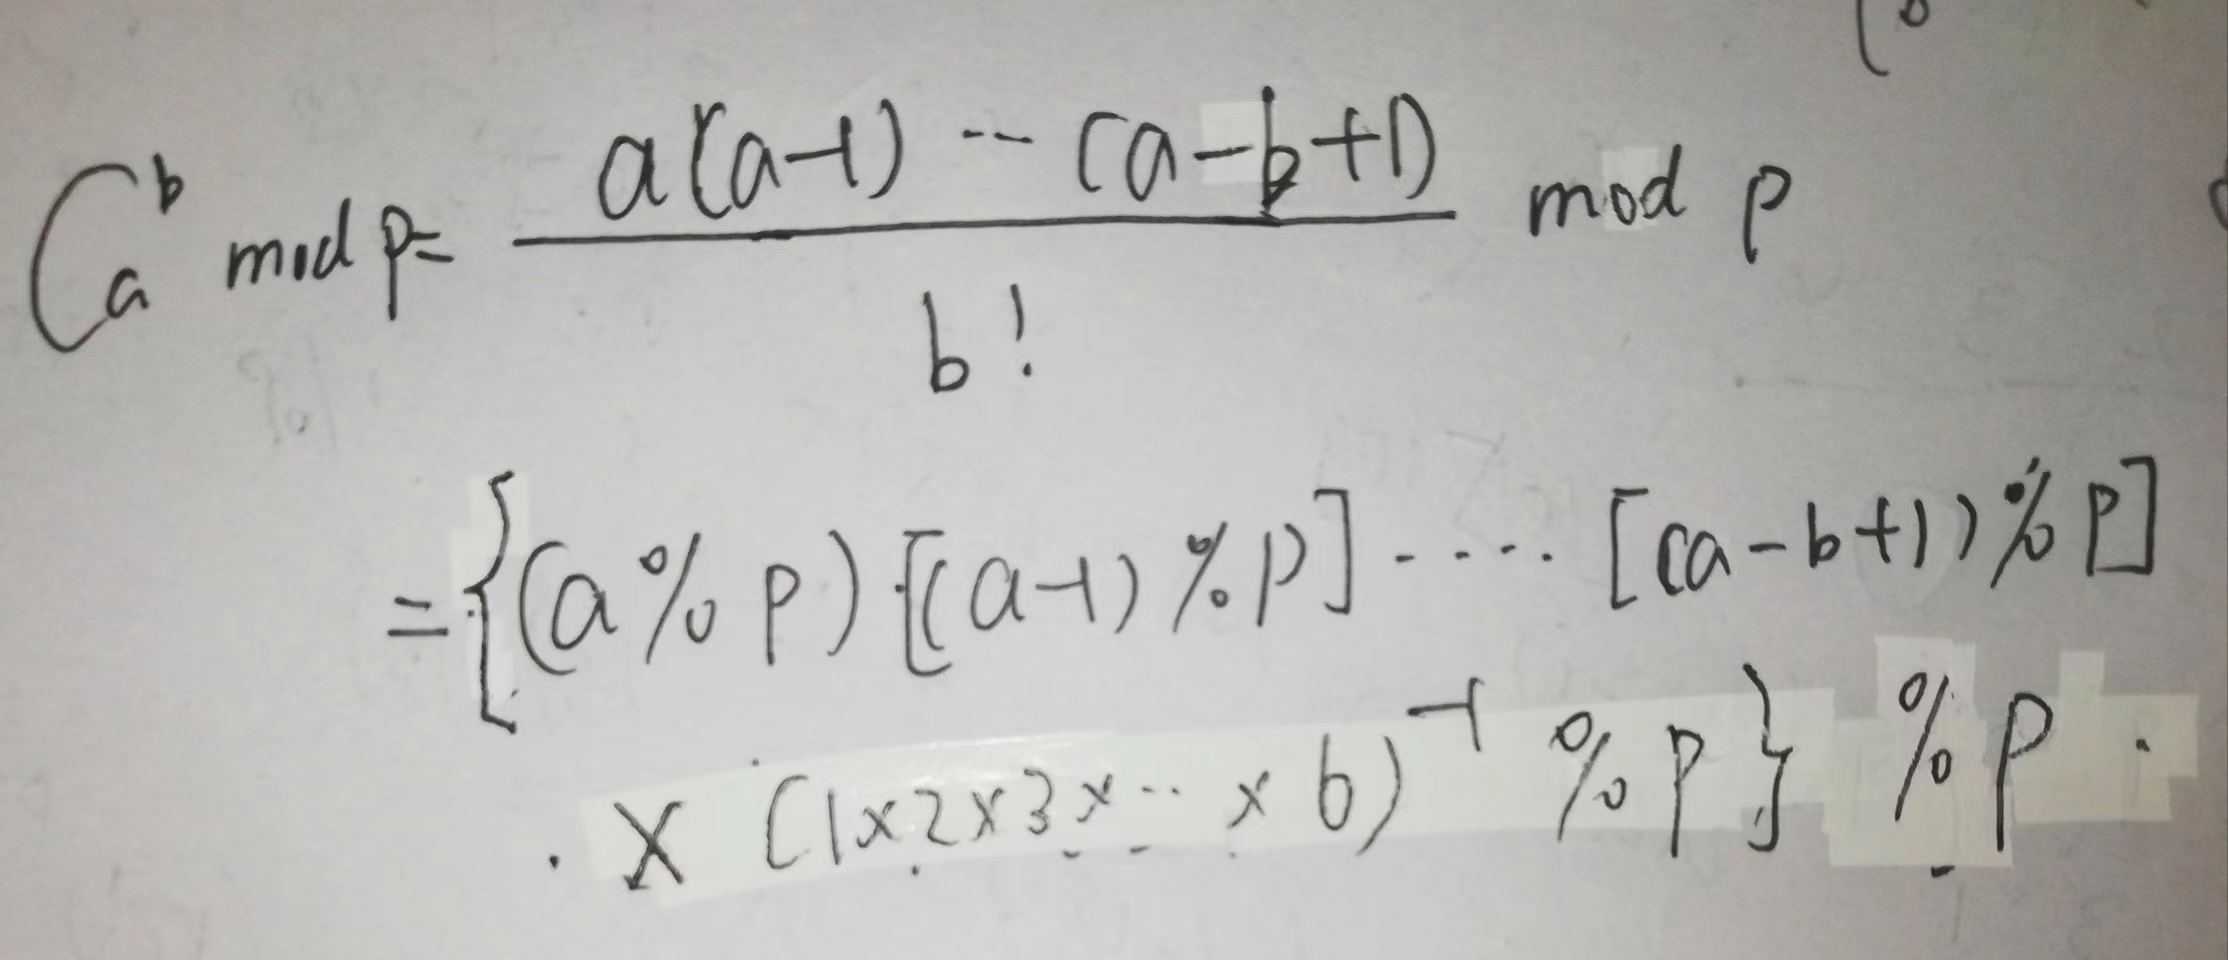 C_a^b mod p = \frac{a(a-1) -- (a-b+1)}{b!} mod p
= {(a % p) [(a-1) % p] ..... [(a-b+1) % p]
. × (1×2×3×...×b)^{-1} % p} % p .